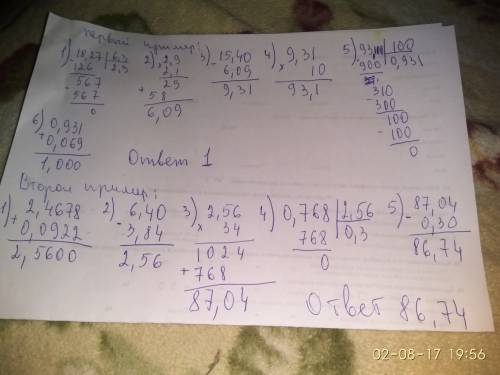 первый пример:
1) 18,27 | 6,3
126 | 2,9
- 567
567
0
2) × 2,9
2,1
29
+ 58
6,09
3) - 15,40
6,09
9,31
4) × 9,31
10
93,1
5) - 93,1 | 100
900 | 0,931
- 310
300
- 100
100
0
6) + 0,931
0,069
1,000
Ответ 1
Второй пример:
1) + 2,4678
0,0922
2,5600
2) - 6,40
3,84
2,56
3) × 2,56
34
1024
+ 768
87,04
4) 0,768 | 2,56
768 | 0,3
0
5) - 87,04
0,30
86,74
Ответ 86,74
02-08-17 19:56